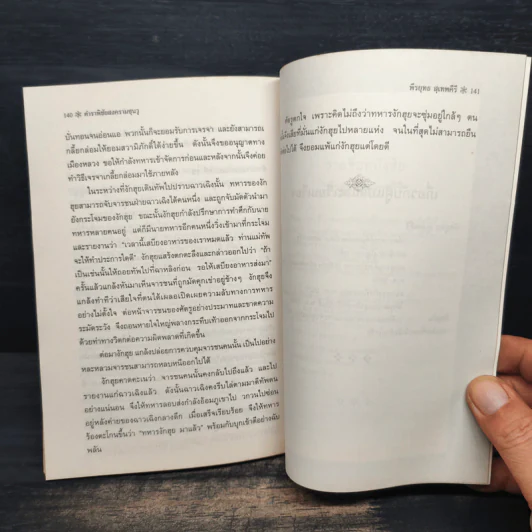 140 ❊ ตำราพิชัยสงครามซุนวู
บั่นทอนจนอ่อนแอ พวกนั้นก็จะยอมรับการเจรจา และยังสามารถเ
กลี้ยกล่อมให้ยอมสวามิภักดิ์ได้ง่ายขึ้น ดังนั้นจึงขออนุญาตทาง
เมืองหลวง ขอให้กำลังทหารเข้าจัดการก่อนและหลังจากนั้นจึงค่อย
ทำวิธีเจรจาเกลี้ยกล่อมมาใช้ภายหลัง
ในระหว่างที่งักฮุยเดินทัพไปปราบฉาวเฉิงนั้น ทหารของงัก
ฮุยสามารถจับจารชนฝ่ายฉาวเฉิงได้คนหนึ่ง และถูกจับมัดตัวนำมา
ยังกระโจมของงักฮุย ขณะนั้นงักฮุยกำลังปรึกษาการทำศึกกับนาย
ทหารหลายคนอยู่ แต่ก็มีนายทหารอีกคนหนึ่งวิ่งเข้ามาที่กระโจม
และรายงานว่า “เวลานี้เสบียงอาหารของเราหมดแล้ว ท่านแม่ทัพ
จะให้ทำประการใดดี” งักฮุยแสร้งตกตะลึงและกล่าวออกไปว่า “ถ้า
เป็นเช่นนั้นให้ถอยทัพไปที่ฉาหลิงก่อน รอให้เสบียงอาหารส่งมา”
ครั้นแล้วแกล้งหันมาเห็นจารชนที่ถูกมัดคุกเข่าอยู่ข้างๆ งักฮุยจึง
แกล้งทำทีว่าเสียใจที่ตนได้เผลอเปิดเผยความลับทางการทหาร
อย่างไม่ตั้งใจ ต่อหน้าจารชนของศัตรูอย่างประมาทและขาดความ
ระมัดระวัง จึงถอนหายใจใหญ่พลางกระทืบเท้าออกจากกระโจมไป
ด้วยท่าทางวิตกต่อความผิดพลาดที่เกิดขึ้น
ต่อมางักฮุย แกล้งปล่อยการควบคุมจารชนคนนั้น เป็นไปอย่าง
หละหลวมจารชนสามารถหลบหนีออกไปได้
งักฮุยคาดคะเนว่า จารชนคนนั้นคงกลับไปถึงแล้ว และไป
รายงานแก่ฉาวเฉิงแล้ว ดังนั้นฉาวเฉิงคงรีบไล่ตามมาตีทัพตน
อย่างแน่นอน จึงให้ทหารลอบส่งกำลังอ้อมภูเขาไป วกวนไปซ่อน
อยู่หลังค่ายของฉาวเฉิงกลางดึก เมื่อเสร็จเรียบร้อย จึงให้ทหาร
ร้องตะโกนขึ้นว่า “ทหารงักฮุย มาแล้ว” พร้อมกับบุกเข้าตีอย่างฉับ
พลัน
พีรยุทธ สุเทพคีรี ❊ 141
ศัตรูตกใจ เพราะคิดไม่ถึงว่าทหารงักฮุยจะซุ่มอยู่ใกล้ๆ ตน
จึงเสียที่มั่นแก่งักฮุยไปหลายแห่ง จนในที่สุดไม่สามารถยืน
ต่อไปได้ จึงยอมแพ้แก่งักฮุยแต่โดยดี